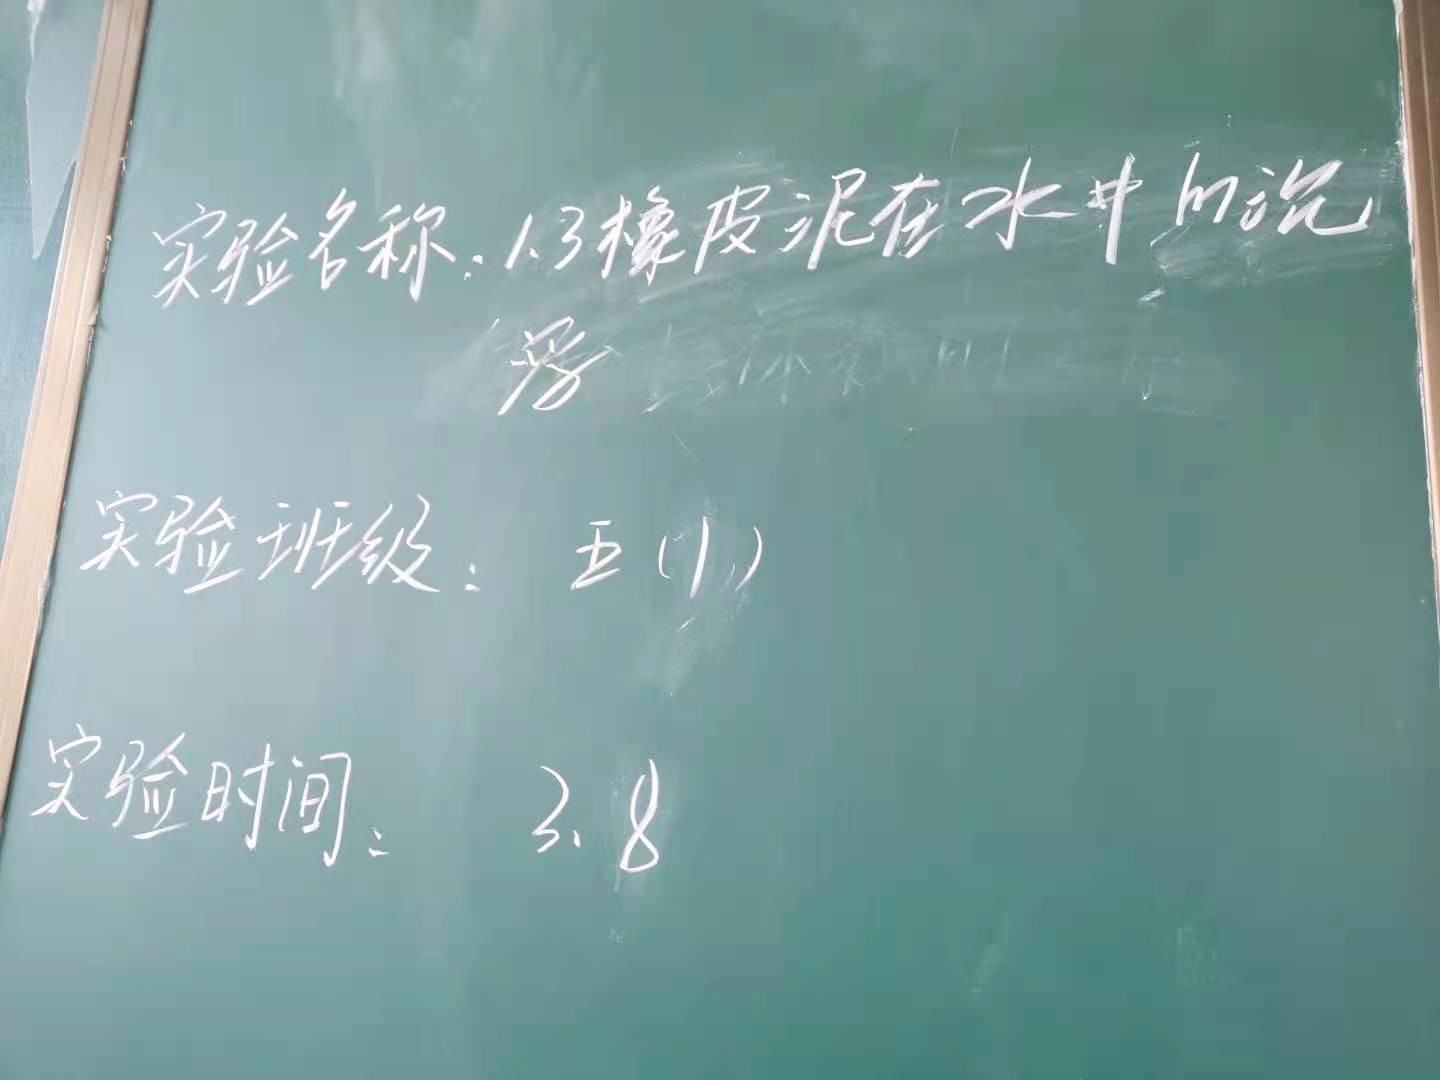 实验名称：1.3橡皮泥在水中的沉
浮
实验班级：五（1）
实验时间：3.8